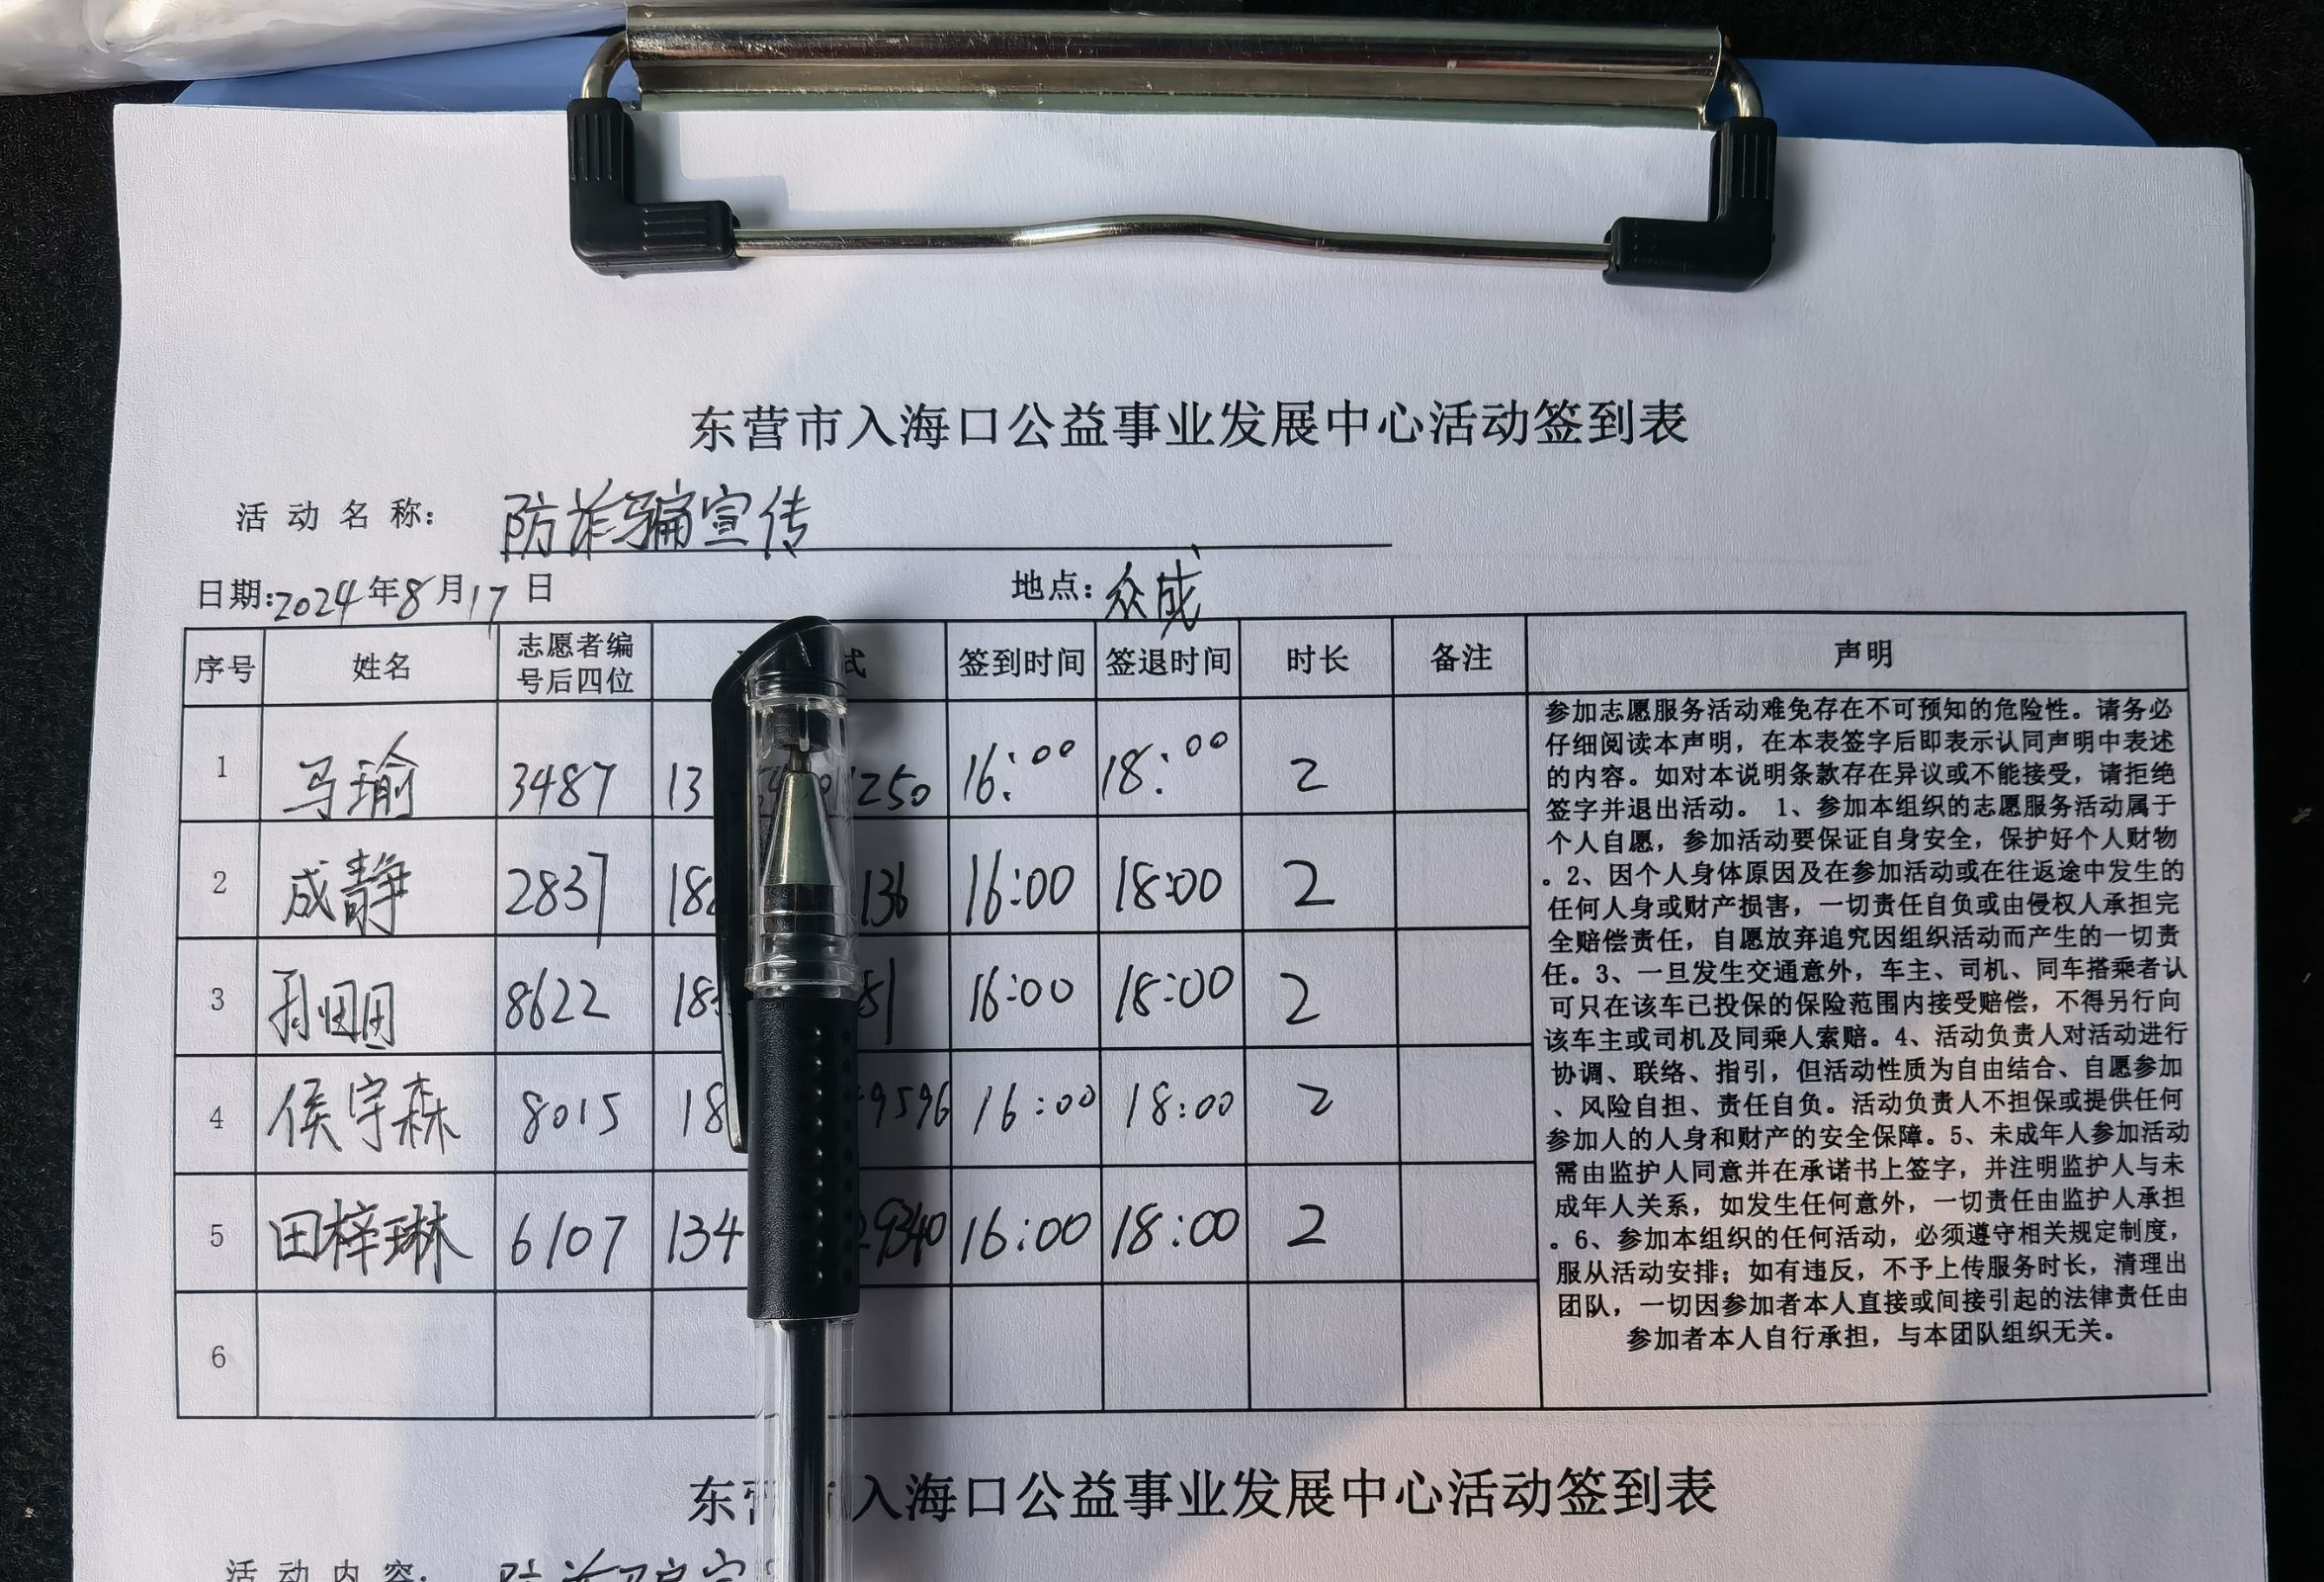 东营市入海口公益事业发展中心活动签到表
活动名称: 防诈骗宣传
日期:2024年8月17日 地点:众成
序号 姓名 志愿者编号后四位 式 签到时间 签退时间 时长 备注 声明
1 马瑜 3487 13 250 16:00 18:00 2
2 成静 2837 18 136 16:00 18:00 2
3 孙 8622 18 81 16:00 18:00 2
4 侯宇森 8015 18 9596 16:00 18:00 2
5 田梓琳 6107 134 9340 16:00 18:00 2
6
参加志愿服务活动难免存在不可预知的危险性。请务必
仔细阅读本声明，在本表签字后即表示认同声明中表述
的内容。如对本说明条款存在异议或不能接受，请拒绝
签字并退出活动。 1、参加本组织的志愿服务活动属于
个人自愿，参加活动要保证自身安全，保护好个人财物
。2、因个人身体原因及在参加活动或在往返途中发生的
任何人身或财产损害，一切责任自负或由侵权人承担完
全赔偿责任，自愿放弃追究因组织活动而产生的一切责
任。3、一旦发生交通意外，车主、司机、同车搭乘者认
可只在该车已投保的保险范围内接受赔偿，不得另行向
该车主或司机及同乘人索赔。4、活动负责人对活动进行
协调、联络、指引，但活动性质为自由结合、自愿参加
、风险自担、责任自负。活动负责人不担保或提供任何
参加人的人身和财产的安全保障。5、未成年人参加活动
需由监护人同意并在承诺书上签字，并注明监护人与未
成年人关系，如发生任何意外，一切责任由监护人承担
。6、参加本组织的任何活动，必须遵守相关规定制度，
服从活动安排；如有违反，不予上传服务时长，清理出
团队，一切因参加者本人直接或间接引起的法律责任由
参加者本人自行承担，与本团队组织无关。
东营 入海口公益事业发展中心活动签到表
活动内容: 防诈骗宣